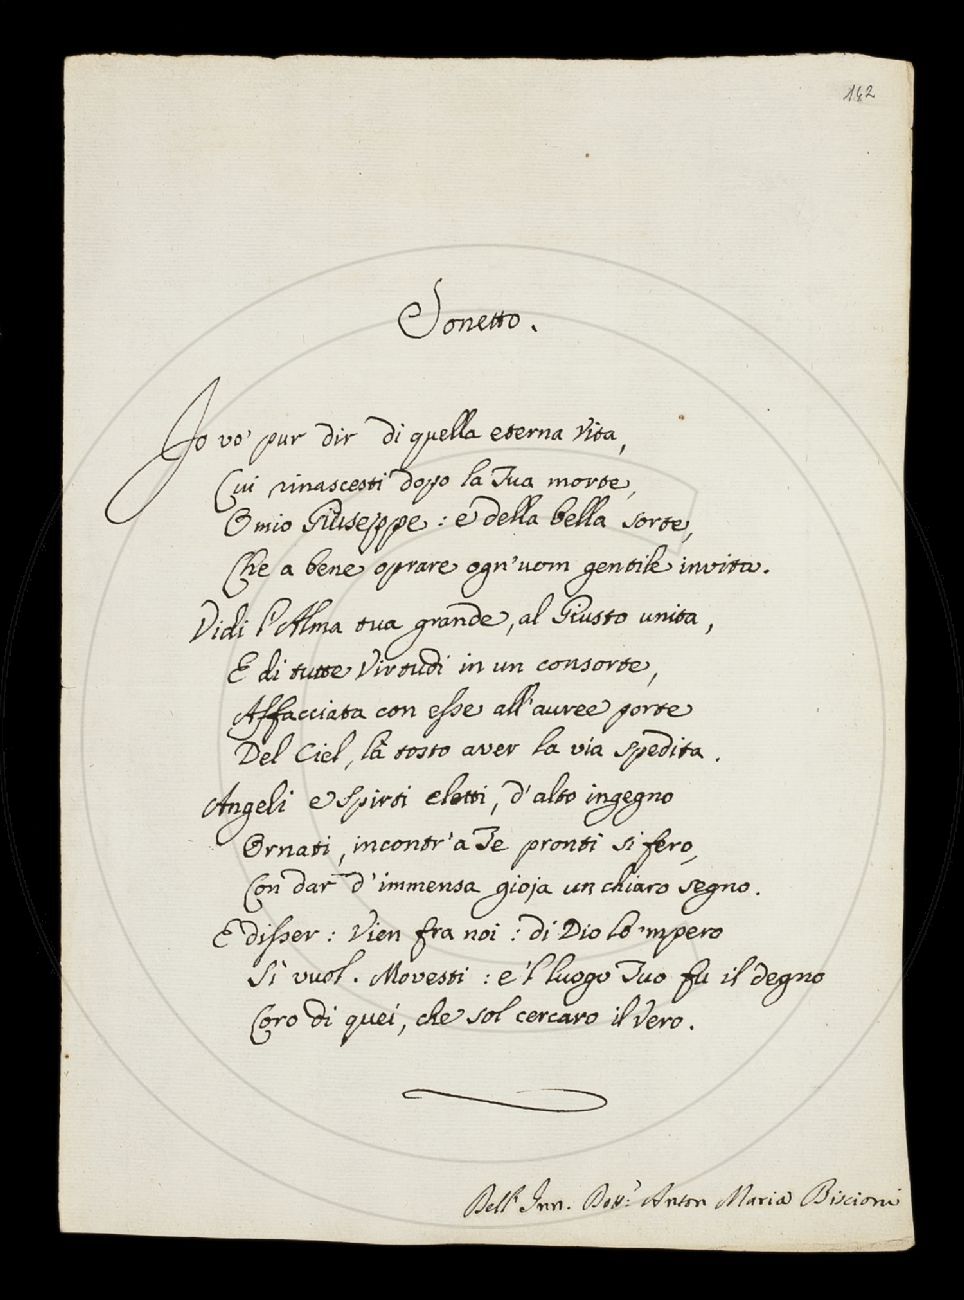 142
Sonetto.
Io vo' pur dir di quella eterna vita,
Cui rinascesti dopo la Tua morte,
O mio Giuseppe: e della bella sorte,
Che a bene oprare ogn'uom gentile invita.
Vidi l'Alma tua grande, al Giusto unita,
E di tutte Virtudi in un consorte,
Affacciata con esse all'auree porte
Del Ciel, là tosto aver la via spedita.
Angeli e Spirti eletti, d'alto ingegno
Ornati, incontr'a Te pronti si fero,
Con dar d'immensa gioja un chiaro segno.
E disser: Vien fra noi: di Dio lo 'mpero
Sì vuol. Movesti: e 'l luogo Tuo fu il degno
Coro di quei, che sol cercaro il Vero.
Dell' Inn. Dott. Anton Maria Biscioni